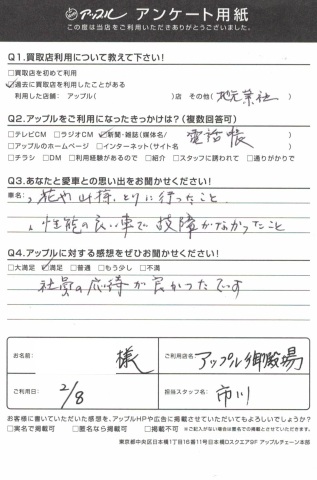 アップル アンケート用紙
この度は当店をご利用いただきありがとうございました。
Q1.買取店利用について教えて下さい!
□買取店を初めて利用
☑過去に買取店を利用したことがある
利用した店舗: アップル( )店 その他( 地元業社 )
Q2.アップルをご利用になったきっかけは?(複数回答可)
□テレビCM □ラジオCM ☑新聞・雑誌(媒体名/ 電話帳 )
□アップルのホームページ □インターネット(サイト名 )
□チラシ □DM □利用経験があるので □紹介 □スタッフに誘われて □通りがかりで
Q3.あなたと愛車との思い出をお聞かせください!
車名:
花や山持とりに行ったこと
性能の良い車で故障がなかったこと
Q4.アップルに対する感想をぜひお聞かせください!
□大満足 ☑満足 □普通 □もう少し □不満
社員の応待が良かったです
お名前: 様
ご利用店名: アップル御殿場
ご利用日: 2/8
担当スタッフ名: 市川
お客様に書いていただいた感想を、アップルHPや広告に掲載させていただいてもよろしいでしょうか?
□実名で掲載可 □匿名なら掲載可 □掲載不可 ※ご記入がない場合は匿名での掲載とさせていただきます。
東京都中央区日本橋1丁目16番11号日本橋Dスクエア9F アップルチェーン本部